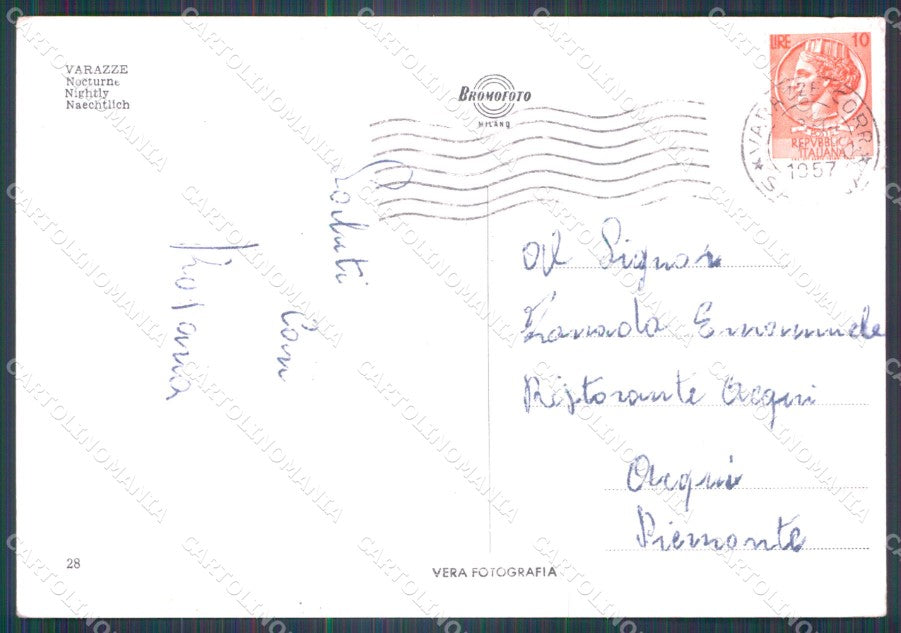 VARAZZE
Nocturne
Nightly
Naechtlich
BROMOFOTO
MILANO
LIRE 10
POSTE
REPVBBLICA
ITALIANA
1957
Saluti
Cari
Al Signor
Emanuele
Ristorante Acqui
Acqui
Piemonte
28
VERA FOTOGRAFIA
CARTOLINOMANIA